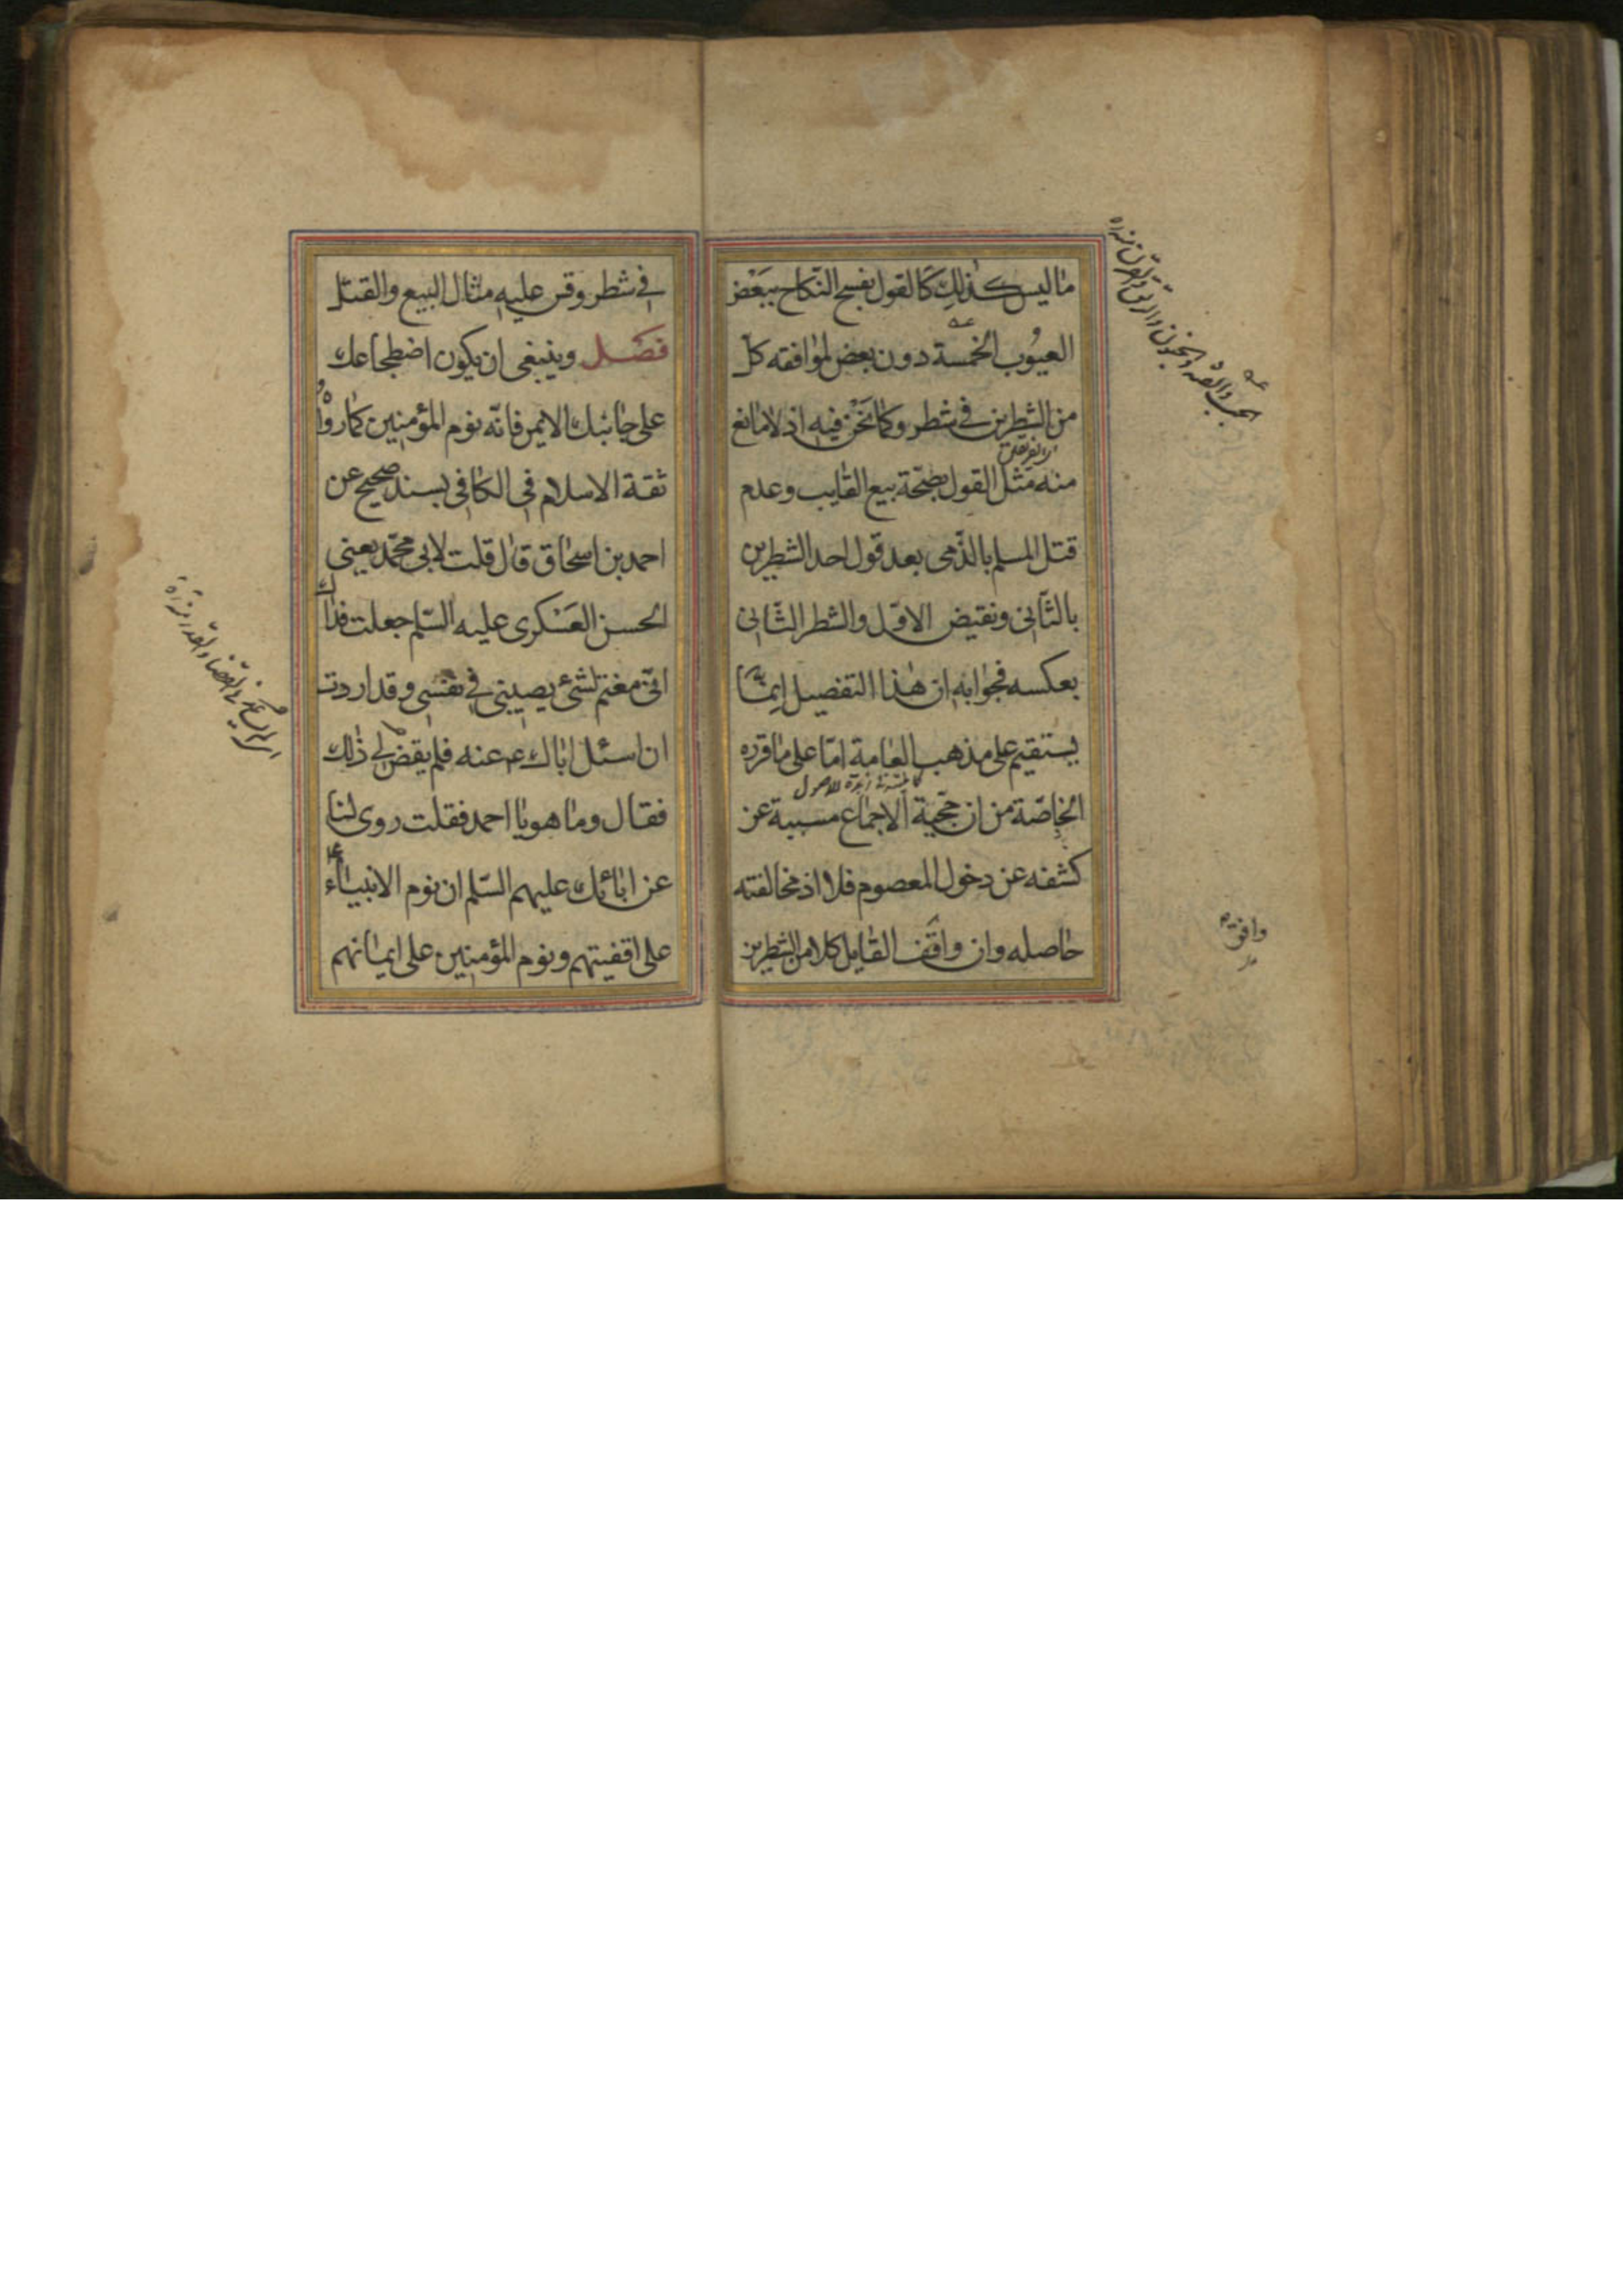 ما ليس كذلك كالقول بفسخ النكاح ببعض
العيوب الخمسة دون بعض لموافقته كل
من الشطرين في شطر وكما نحن فيه اذ لا مانع
منه مثل القول بصحة بيع الغايب وعدم
قتل المسلم بالذمى بعد قول احد الشطرين
بالثانى ونقيض الاول والشطر الثانى
بعكسه فجوابه ان هذا التفصيل انما
يستقيم على مذهب العامة اما على ما قرره
الخاصة من ان حجية الاجماع مسببة عن
كشفه عن دخول المعصوم فلا اذ مخالفته
حاصله وان وافق القايل كلا من الشطرين
وافق
في شطر وقس عليه مثال البيع والقتل
فصل وينبغى ان يكون اضطجاعك
على جانبك الايمن فانه نوم المؤمنين كما رواه
ثقة الاسلام فى الكافى بسند صحيح عن
احمد بن اسحاق قال قلت لابى محمد يعنى
الحسن العسكرى عليه السلم جعلت فداك
انى مغتم لشئ يصيبنى في نفسى وقد اردت
ان اسئل اباك ع عنه فلم يقض لى ذلك
فقال وما هو يا احمد فقلت روى لنا
عن ابائك عليهم السلم ان نوم الانبياء ع
على اقفيتهم ونوم المؤمنين على ايمانهم